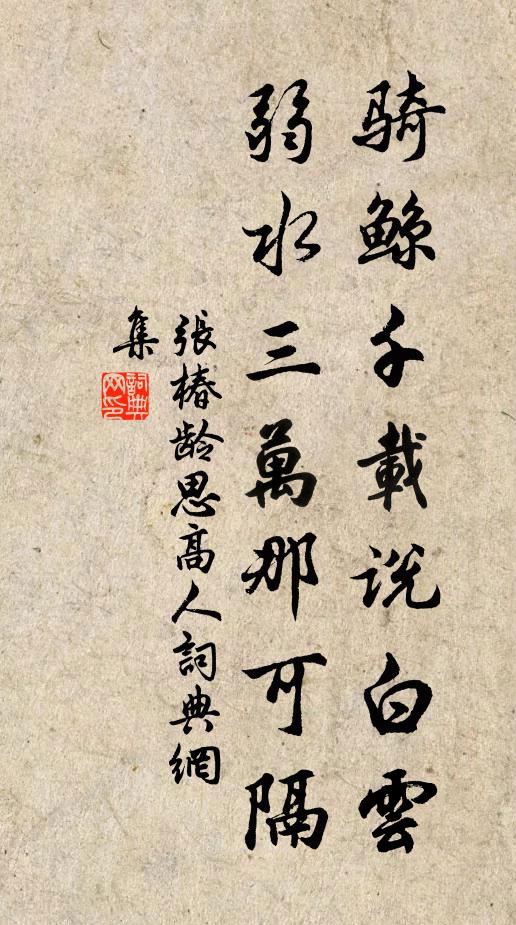 騎鲸千載説白雲
弱水三萬那可隔
張椿龄思高人詞典網
集
詞典
网印